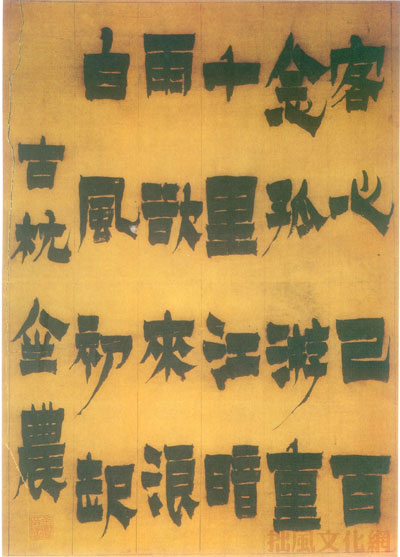 客心已百
念孤游重
千里江暗
雨欲來浪
白風初起
古杭金農
拙風文化網